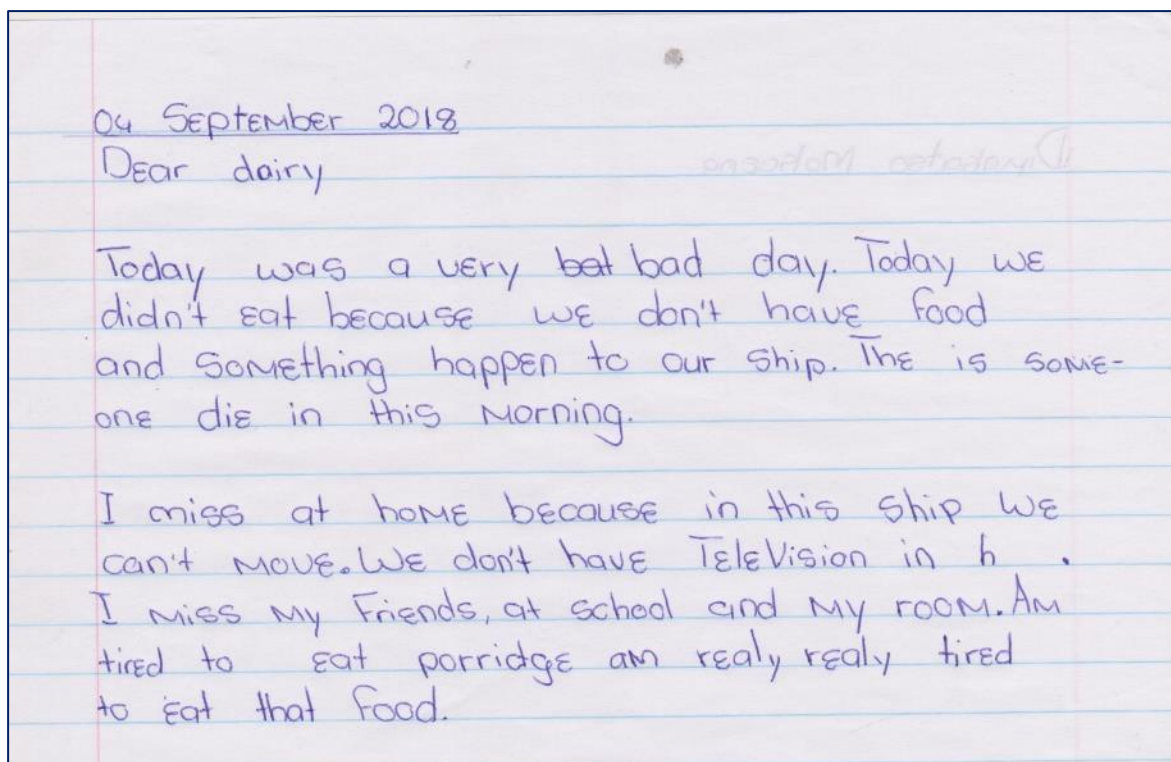 04 September 2018
Dear dairy
Today was a very bat bad day. Today we
didn't eat because we don't have food
and something happen to our ship. The is some-
one die in this morning.
I miss at home because in this ship we
can't move. We don't have TeleVision in h .
I miss my Friends, at school and my room. Am
tired to eat porridge am realy realy tired
to eat that food.